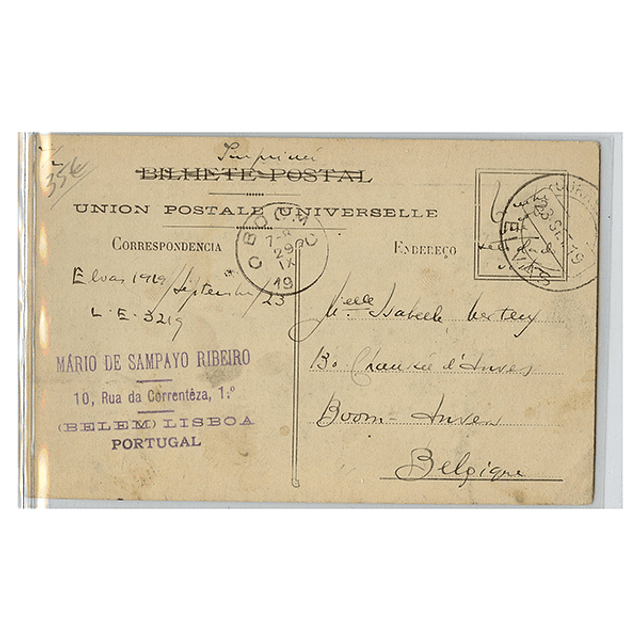 35€
Imprimé
BILHETE-POSTAL
UNION POSTALE UNIVERSELLE
CORRESPONDENCIA
ENDEREÇO
Elvas 1919/Septembre/23
L.E. 3219
MÁRIO DE SAMPAYO RIBEIRO
10, Rua da Correntêza, 1.º
(BELEM) LISBOA
PORTUGAL
BOOM
29
IX
19
23 SET 19
ELVAS
Melle Isabelle Mertens
130 Chaussée d'Anvers
Boom - Anvers
Belgique